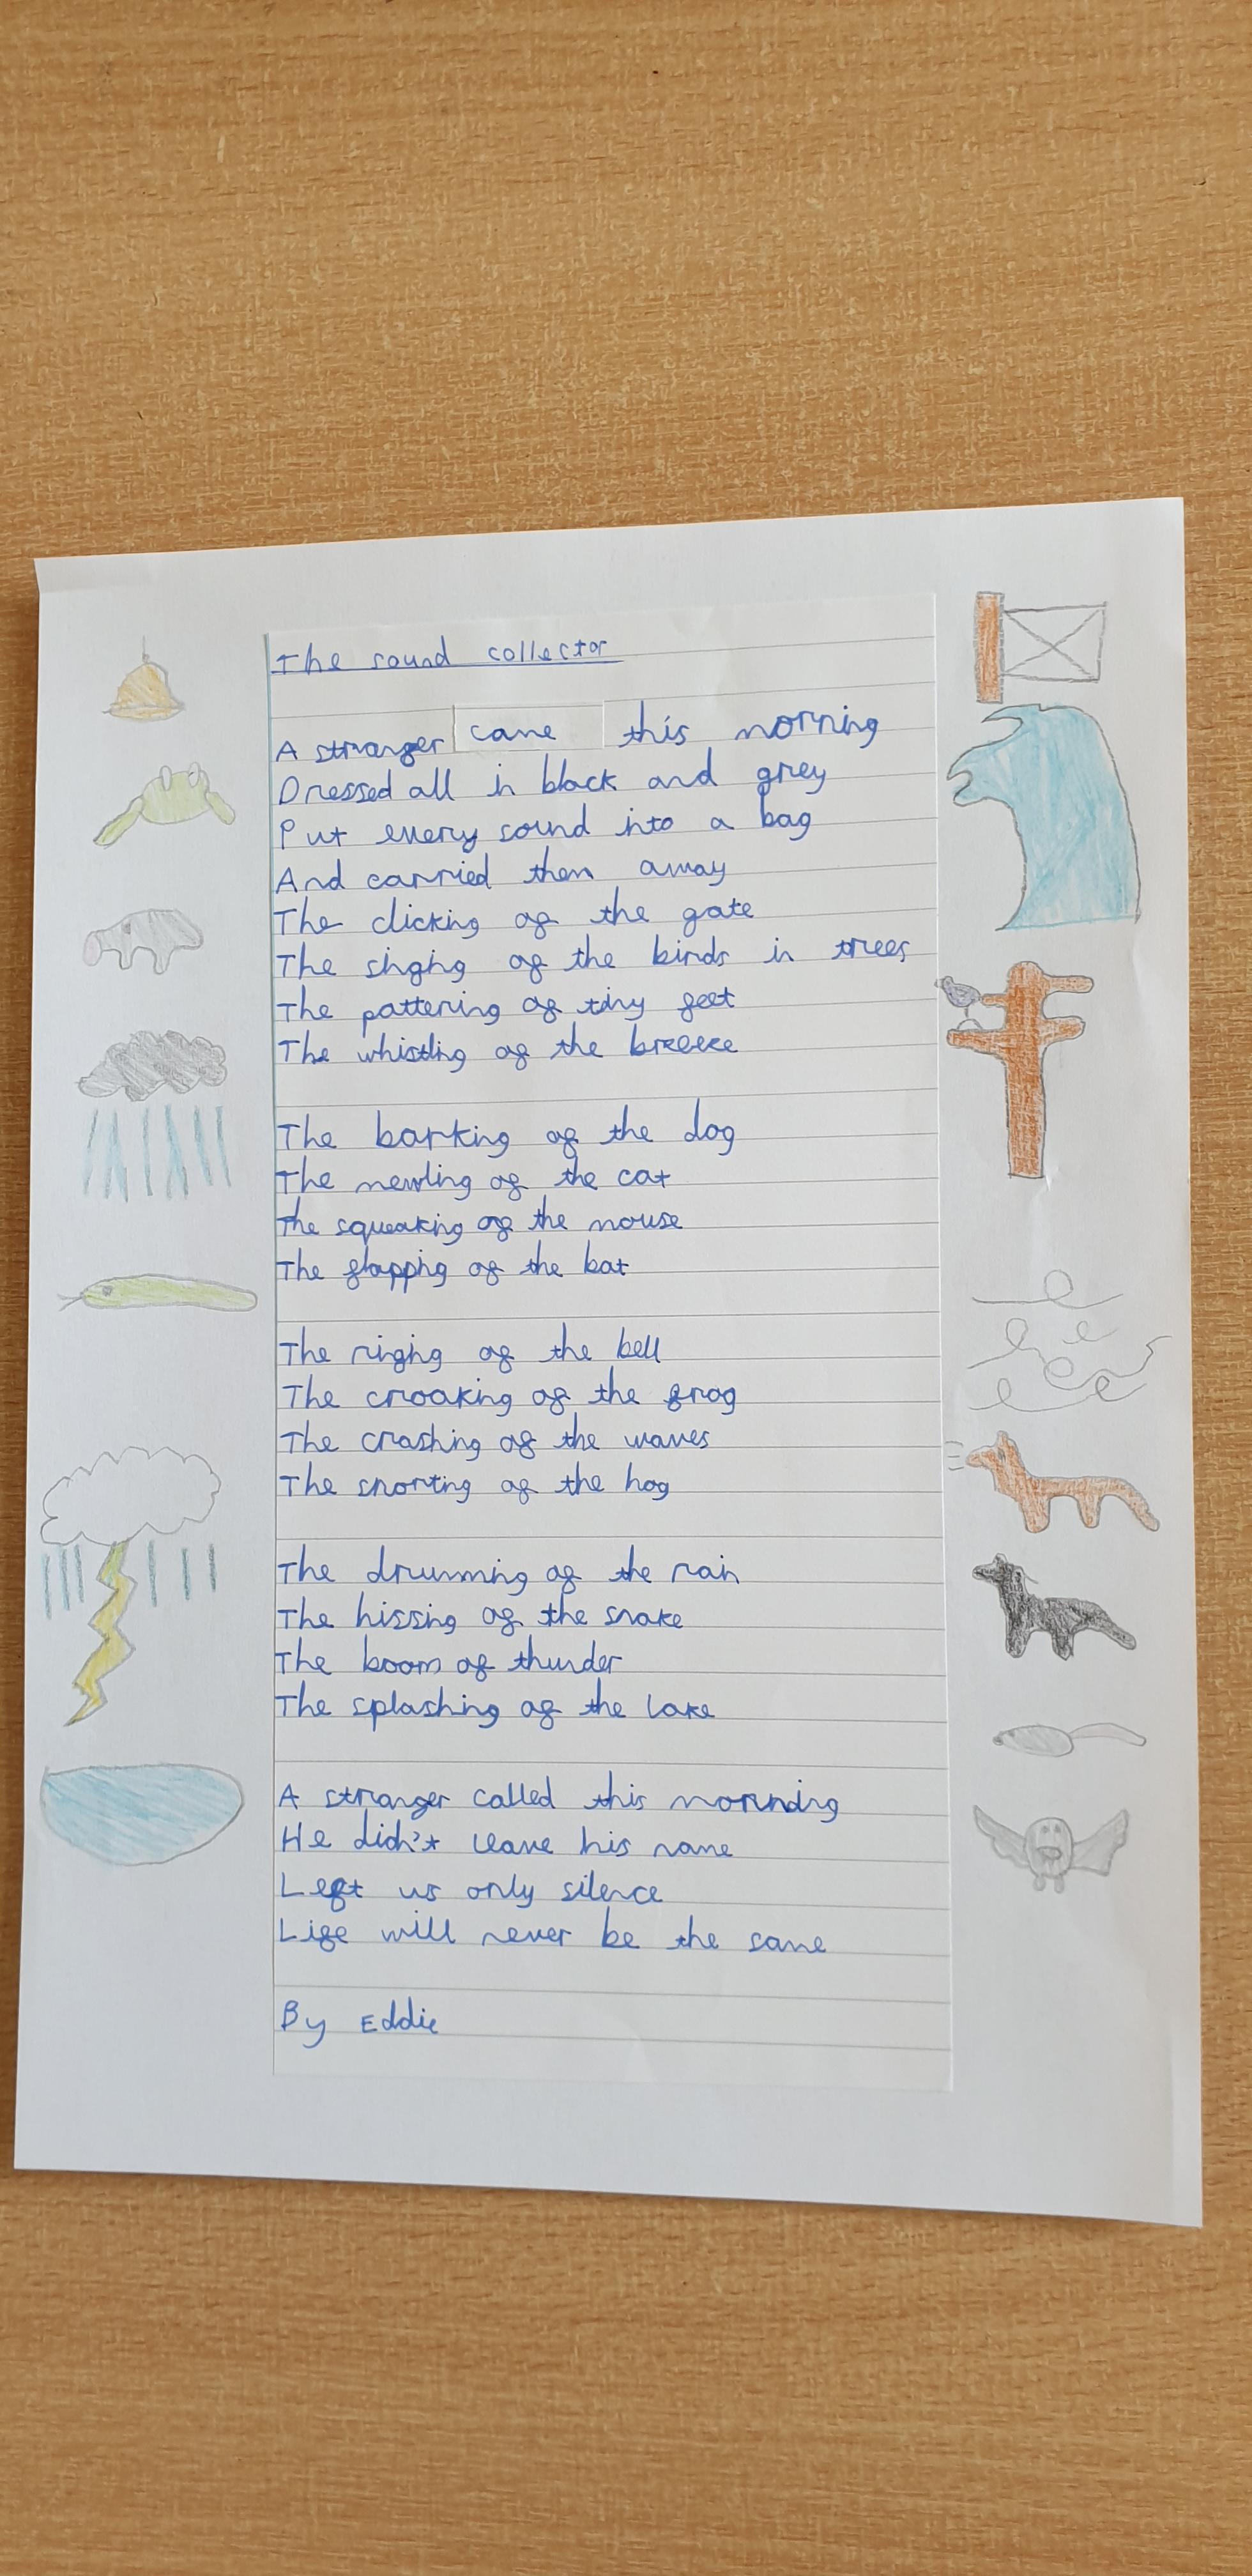 The sound collector
A stranger came this morning
Dressed all in black and grey
Put every sound into a bag
And carried them away
The clicking of the gate
The singing of the birds in trees
The pattering of tiny feet
The whistling of the breeze
The barking of the dog
The mewling of the cat
The squeaking of the mouse
The flapping of the bat
The ringing of the bell
The croaking of the frog
The crashing of the waves
The snorting of the hog
The drumming of the rain
The hissing of the snake
The boom of thunder
The splashing of the lake
A stranger called this morning
He didn't leave his name
Left us only silence
Life will never be the same
By Eddie